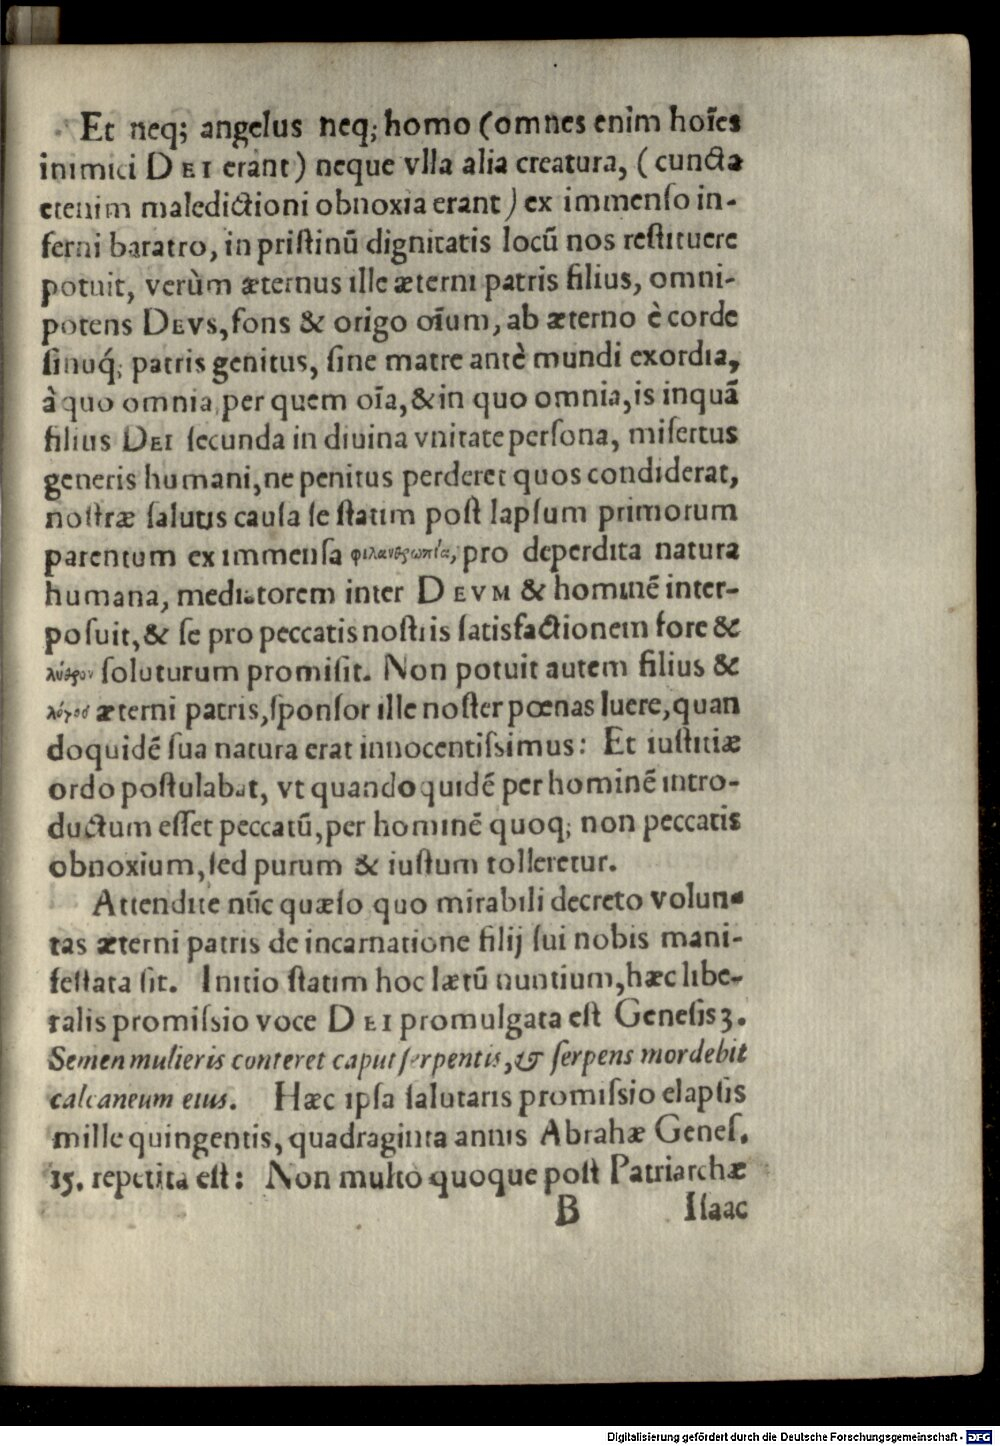 Et neq; angelus neq; homo (omnes enim hoīes
inimici DEI erant) neque vlla alia creatura, (cuncta
etenim maledictioni obnoxia erant) ex immenſo in-
ferni baratro, in priſtinū dignitatis locū nos reſtituere
potuit, verùm æternus ille æterni patris filius, omni-
potens DEVS, fons & origo oīum, ab æterno è corde
ſinuq́; patris genitus, ſine matre antè mundi exordia,
à quo omnia per quem oīa, & in quo omnia, is inquā
filius DEI ſecunda in diuina vnitate perſona, miſertus
generis humani, ne penitus perderet quos condiderat,
noſtræ ſalutis cauſa ſe ſtatim poſt lapſum primorum
parentum ex immenſa φιλανθρωπία, pro deperdita natura
humana, mediatorem inter DEVM & hominē inter-
poſuit, & ſe pro peccatis noſtris ſatisfactionem fore &
λύθρον ſoluturum promiſit. Non potuit autem filius &
λόγοσ æterni patris, ſponſor ille noſter pœnas luere, quan
doquidē ſua natura erat innocentiſsimus: Et iuſtitiæ
ordo poſtulabat, vt quandoquidē per hominē intro-
ductum eſſet peccatū, per hominē quoq; non peccatis
obnoxium, ſed purum & iuſtum tolleretur.
Attendite nūc quæſo quo mirabili decreto volun-
tas æterni patris de incarnatione filij ſui nobis mani-
feſtata ſit. Initio ſtatim hoc lætū nuntium, hæc libe-
ralis promiſsio voce DEI promulgata eſt Geneſis 3.
Semen mulieris conteret caput ſerpentis, & ſerpens mordebit
calcaneum eius. Hæc ipſa ſalutaris promiſsio elapſis
mille quingentis, quadraginta annis Abrahæ Geneſ.
15. repetita eſt: Non multo quoque poſt Patriarchæ
B Iſaac
Digitalisierung gefördert durch die Deutsche Forschungsgemeinschaft - DFG